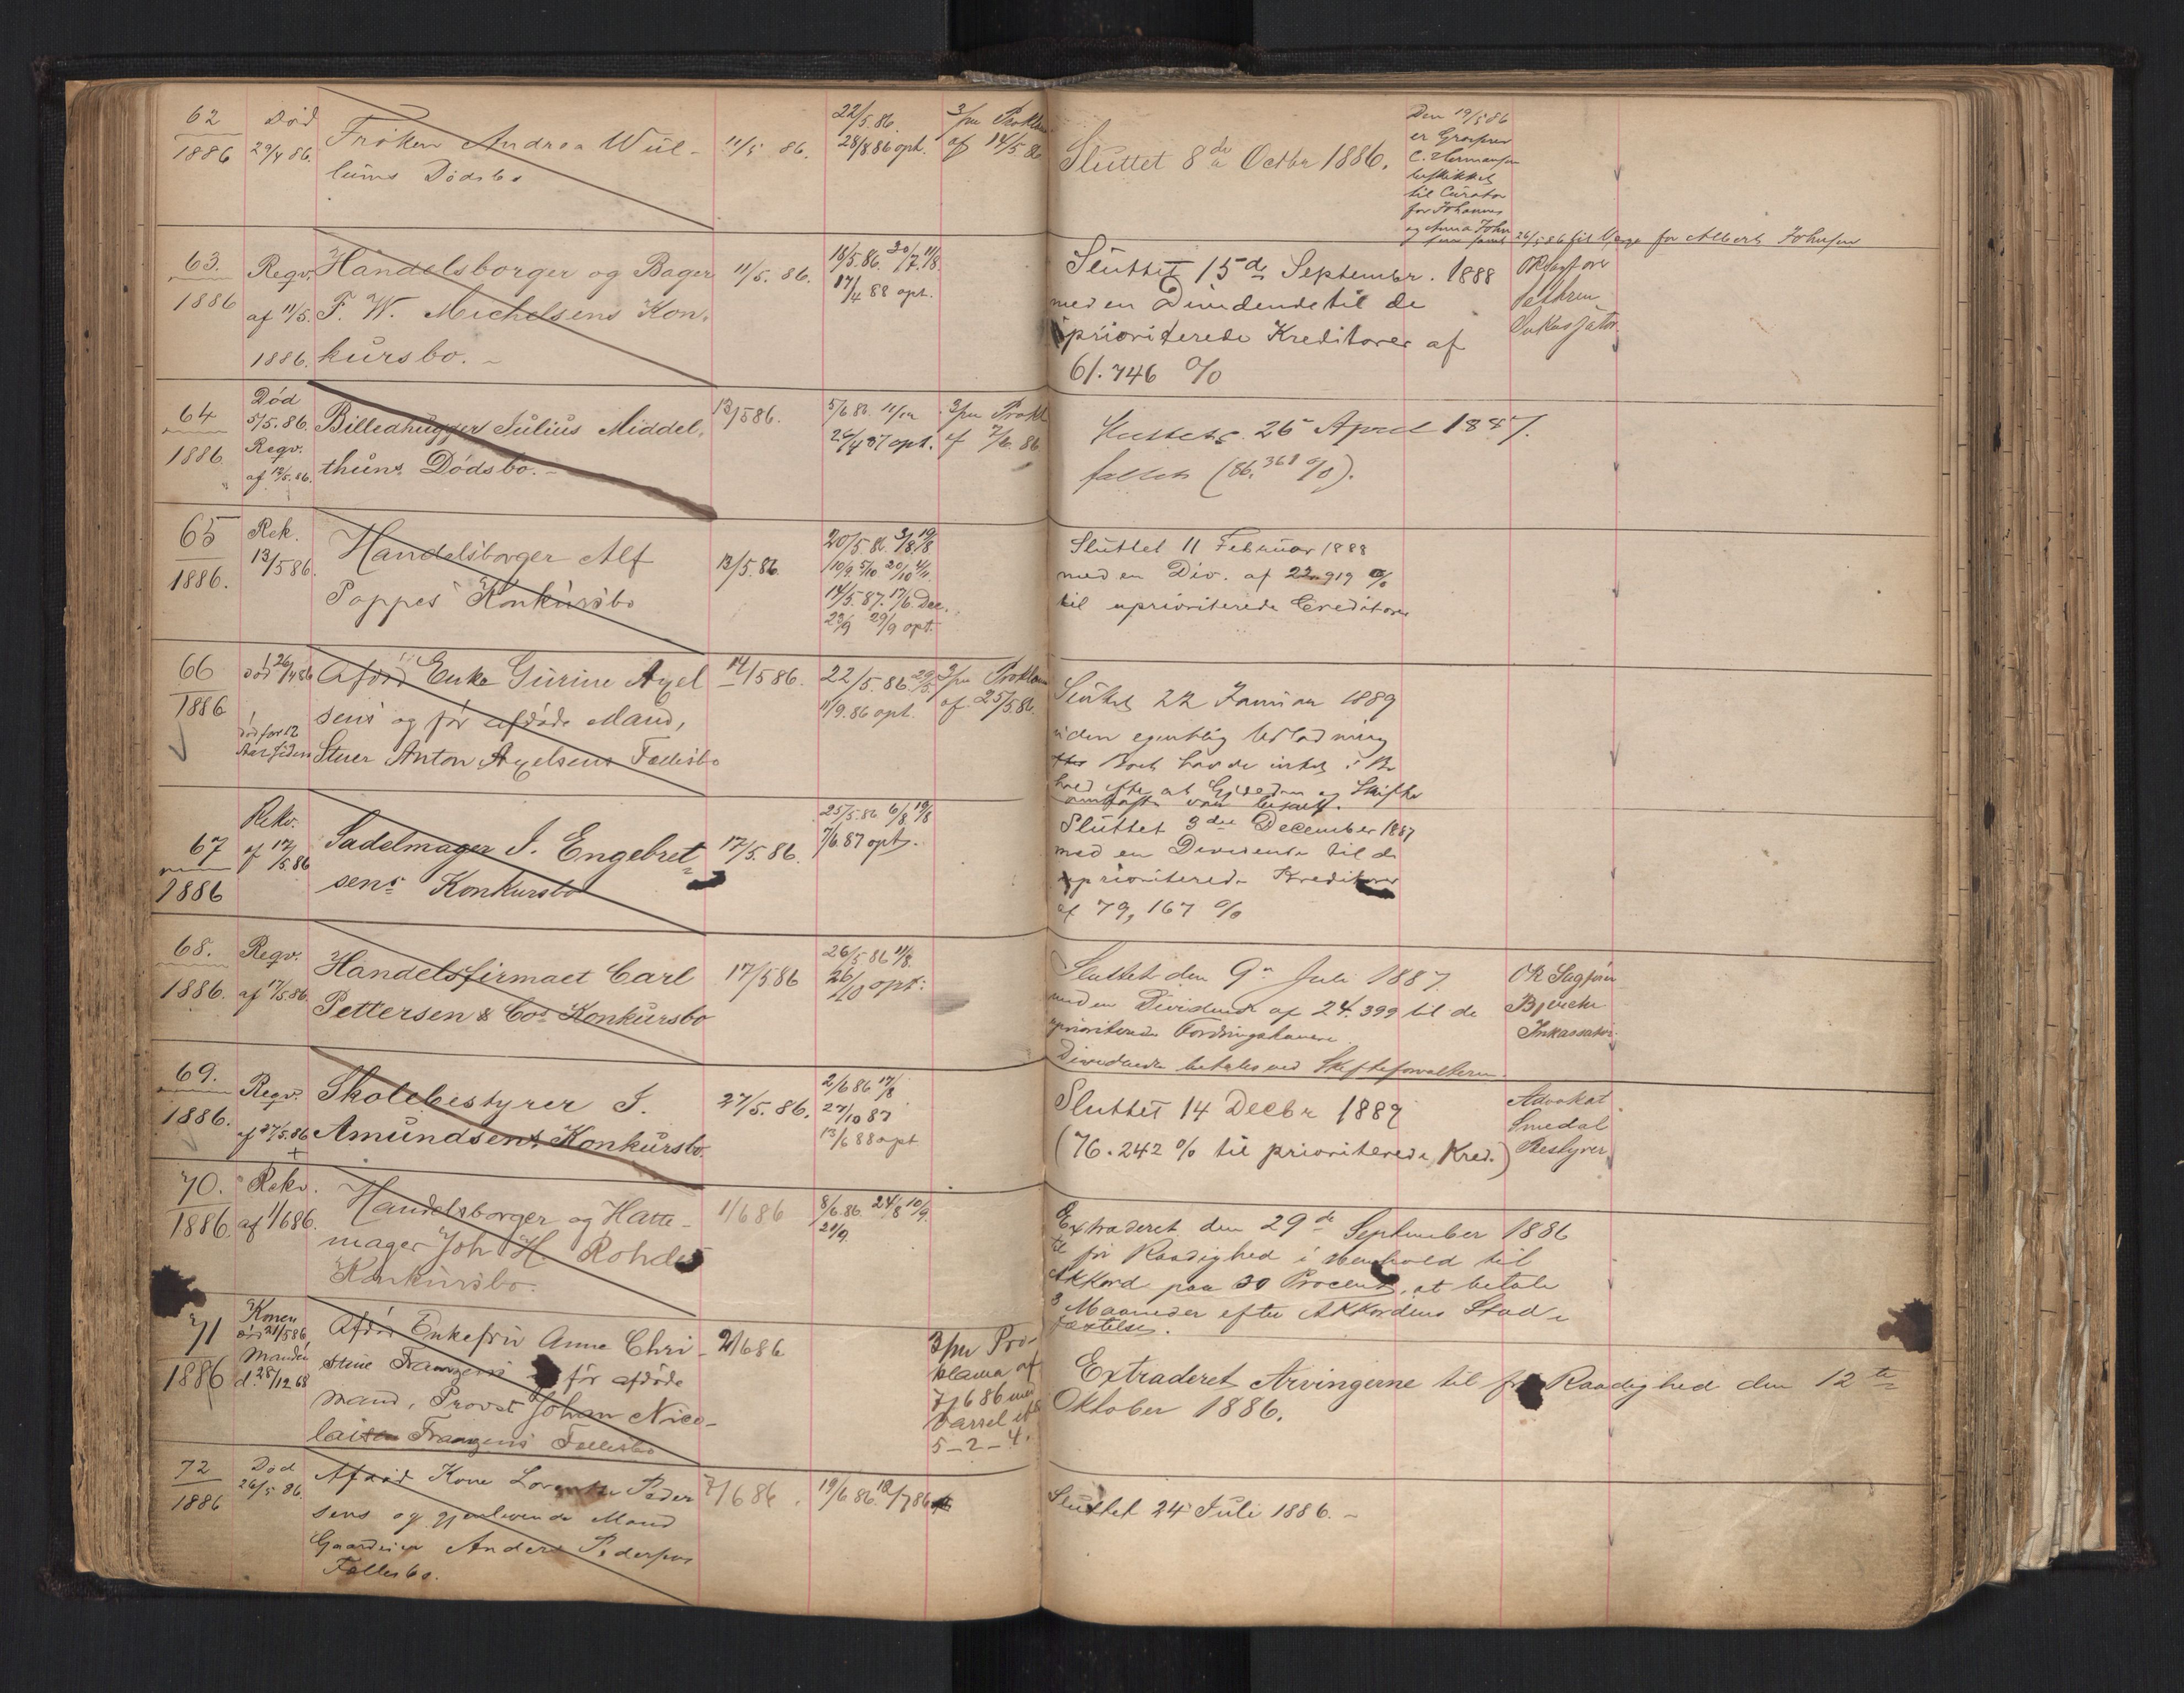 62
1886
Død
29/4 86.
Frøken Andrea Wül-
lums Dødsbo
11/5 86.
22/5.86.
28/8 86 opt.
3/m Proklam
af 14/5 86
Sluttet 8de Octbr 1886.
Den 19/5 86
er
C. Hermansen
beskikket
til Curator
for Johannes
og Anna John
26/5 86 til Værge for Albert Johnsen
63.
1886
Reqv.
af 11/5.
1886.
Handelsborger og Bager
F. W. Michelsens Kon-
kursbo. -
11/5. 86.
18/5.86. 30/7. 11/8.
17/4 88 opt.
Sluttet 15de Septembr. 1888
med en Dividende til de
uprioriterede Kreditorer af
61.746 %
64
1886
Død
5/5.86.
Reqv.
af 12/5.86.
Billedhugger Julius Middel-
thuns Dødsbo. -
13/5 86.
5/6 86. 11/12
26/4 87 opt.
3/m Prokl
af 7/6 86
Sluttet 26 April 1887.
fallit (86,368 %).
65
1886.
Rek.
13/5 86.
Handelsborger Alf
Poppes Konkursbo
13/5.86.
20/5 86. 3/8. 19/8
10/9. 5/10 20/10 4/11
14/5.87. 17/6. Dec.
23/9 29/9 opt.
Sluttet 11 Februar 1888
med en Div. af 22.919 %
til uprioriterede Creditorer
66
1886
død 26/4 86
død for 12
Aar siden
Afdød Enke Gurine Axel
sens og før afdøde Mand,
Stuer Anton Axelsens Fællesbo
14/5 86.
22/5.86. 29/5.
11/9.86 opt.
3/m Proklam
af 25/5 86.
Sluttet 22 Januar 1889
uden egentlig Udlodning
Boet havde intet i Be
hold efter at Gjælden og Skifte
omkostn. var betalt.
67
1886
Rekv.
af 17/5.86
Sadelmager J. Engebret
sens Konkursbo
17/5.86.
25/5.86 6/8. 19/8
7/6 87 opt.
Sluttet 3die December 1887
med en Dividende til de
uprioriterede Kreditorer
af 79,167 %
68.
1886.
Reqv.
af 17/5.86
Handelsfirmaet Carl
Pettersen & Cos Konkursbo
17/5 86
26/5 86 11/8.
26/10 opt.
Sluttet den 9de Juli 1887.
med en Dividende af 24.399 til de
uprioriterede Fordringshavere.
Dividende betales ved Skifteforvalteren.
OR Sagfører
Bjerche
Inkassator.
69.
1886.
Reqv.
af 27/5.86
+
Skolebestyrer I.
Amundsens Konkursbo.
27/5.86.
2/6 86 17/8
27/10 87
13/6 88 opt
Sluttet 14 Decbr 1889
(76.242 % til prioriterede Kred.)
Advokat
Smedal
Bestyrer
70.
1886.
Rekv.
af 1/6 86.
Handelsborger og Hatte-
mager Joh H. Rohdes
Konkursbo.
1/6 86
8/6.86. 24/8 10/9.
21/9.
Extraderet den 29de September 1886
til fri Raadighed i Henhold til
Akkord paa 30 Procent, at betale
3 Maaneder efter Akkordens Stad-
fæstelse.
71
1886
Konen
død 21/5 86
Manden
d. 28/12 68
Afdød Enkefru Anne Chri-
stine Franzens og før afdøde
Mand, Provst Johan Nico-
laisen Franzens Fællesbo
2/6 86
3/m Pro-
klama af
7/6 86 med
Varsel efter
5-2-4.
Extraderet Arvingerne til fri Raadighed den 12te
Oktober 1886.
72
1886
Død
26/5 86.
Afdød Kone Lorentze Peder
sens og gjenlevende Mand
Gaardeier Anders Pedersens
Fællesbo.
7/6 86.
19/6 86. 18/7 86
Sluttet 24 Juli 1886. -